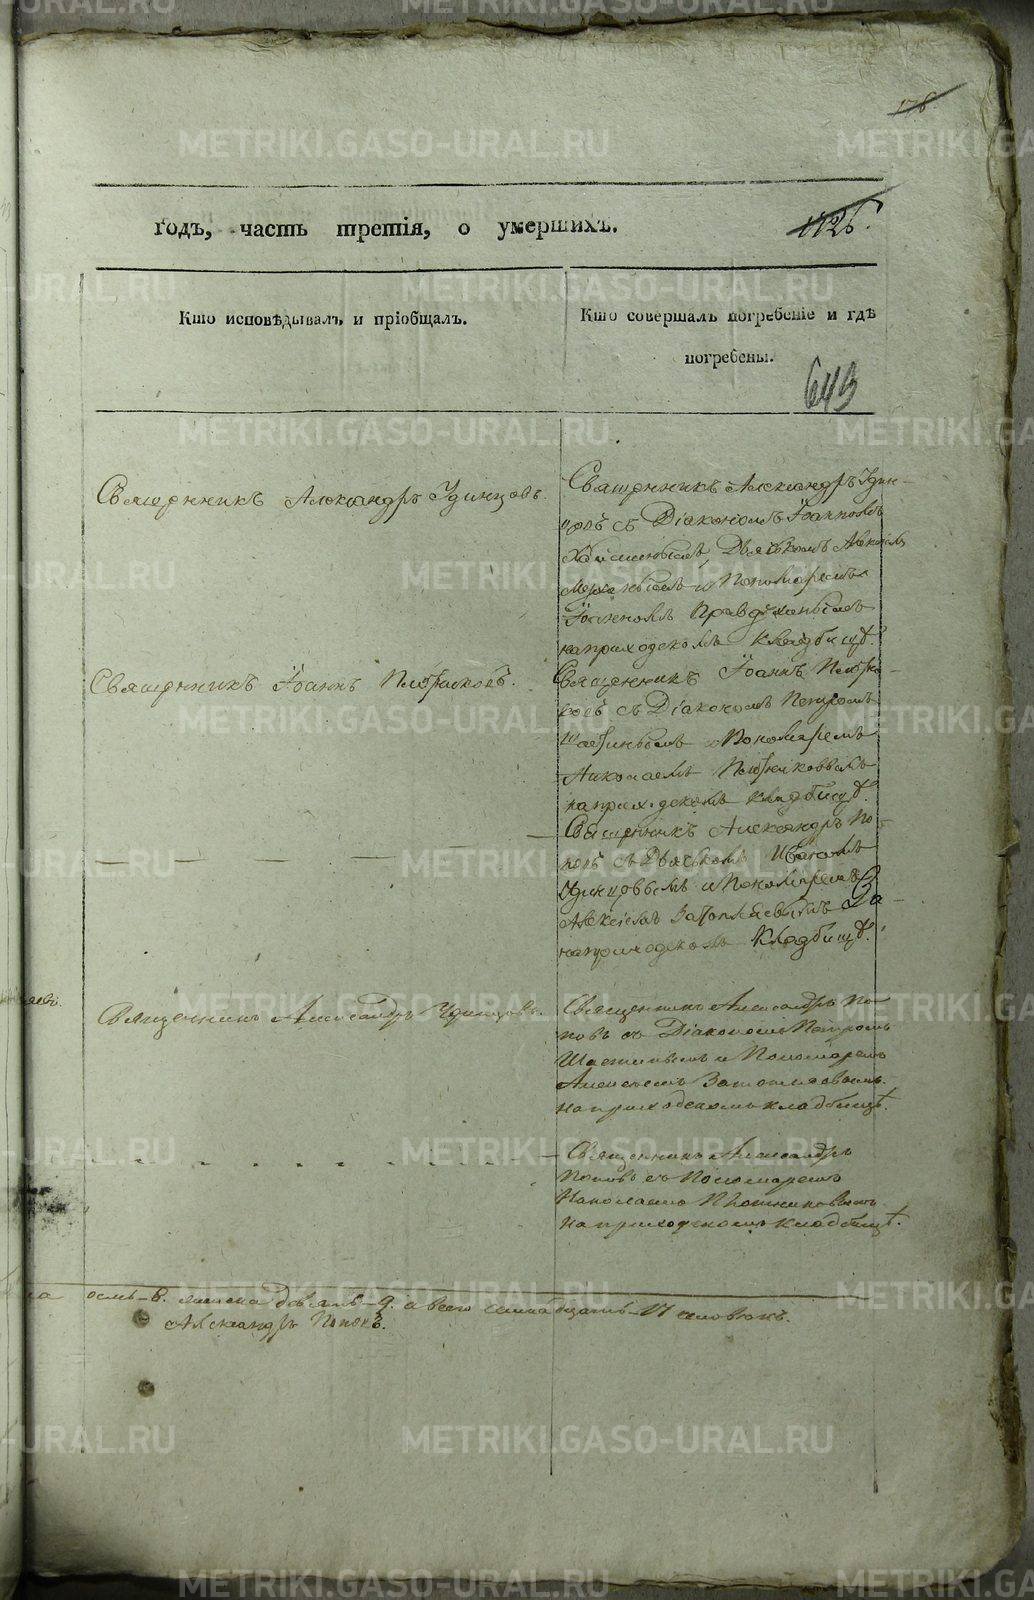 178.
годъ, часть третія, о умершихъ.
1126.
Кто исповѣдывалъ и пріобщалъ.
Кто совершалъ погребеніе и гдѣ
погребены.
643
Священникъ Александръ Удинцовъ.
Священникъ Александръ Удин-
цовъ съ Діакономъ Іоанномъ
Дьячкомъ
и Пономаремъ
Іоанномъ Правдухинымъ
на приходскомъ кладбищѣ.
Священникъ Іоаннъ Плотниковъ.
Священникъ Іоаннъ Плотни-
ковъ съ Діакономъ Петромъ
Шастинымъ и Пономаремъ
Николаемъ Плотниковымъ
на приходскомъ кладбищѣ.
Священникъ Александръ По-
повъ съ Дьячкомъ Иваномъ
Удинцовымъ и Пономаремъ
Алексіемъ Затопляевымъ За
на приходскомъ кладбищѣ.
Священникъ Александръ Удинцовъ.
Священникъ Александръ По-
повъ съ Діакономъ Петромъ
Шастинымъ и Пономаремъ
Алексѣемъ Затопляевымъ
на приходскомъ кладбищѣ.
Священникъ Александръ
Поповъ съ Пономаремъ
Николаемъ Плотниковымъ
на приходскомъ кладбищѣ.
осмь-8. женска девять-9. а всего семнадцать-17 человѣкъ.
Александръ Поповъ.
METRIKI.GASO-URAL.RU